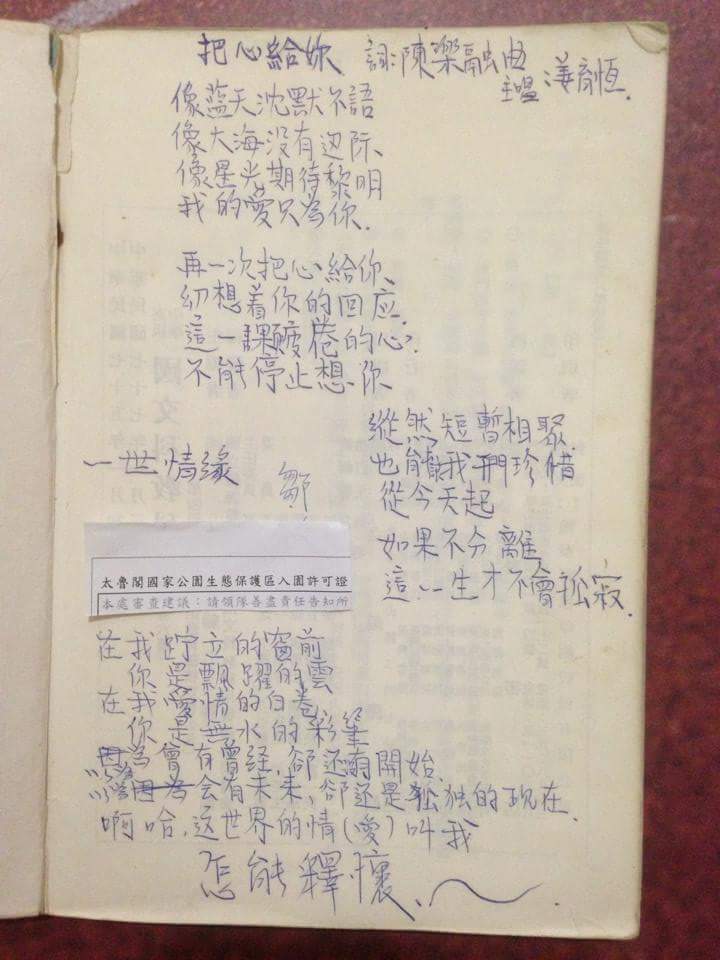 把心給妳 詞:陳樂融曲
主唱 姜育恒.
像蓝天沈默不語
像大海没有边际、
像星光期待黎明
我的愛只為你.
再一次把心給你、
幻想着你的回应.
這一課疲倦的心?
不能停止想你
縱然短暫相聚.
也能讓我們珍惜
從今天起
如果不分離
這一生才不會孤寂.
一世情緣
鄒
太魯閣國家公園生態保護區入園許可證
本處審查建議：請領隊善盡責任告知所
在我佇立的窗前
你是飄躍的雲
在我愛情的白卷
你是無水的彩筆
以為會有曾经,卻还有開始.
以為因為会有未来、卻还是孤独的現在.
啊哈.这世界的情(愛)叫我
怎能釋懷、